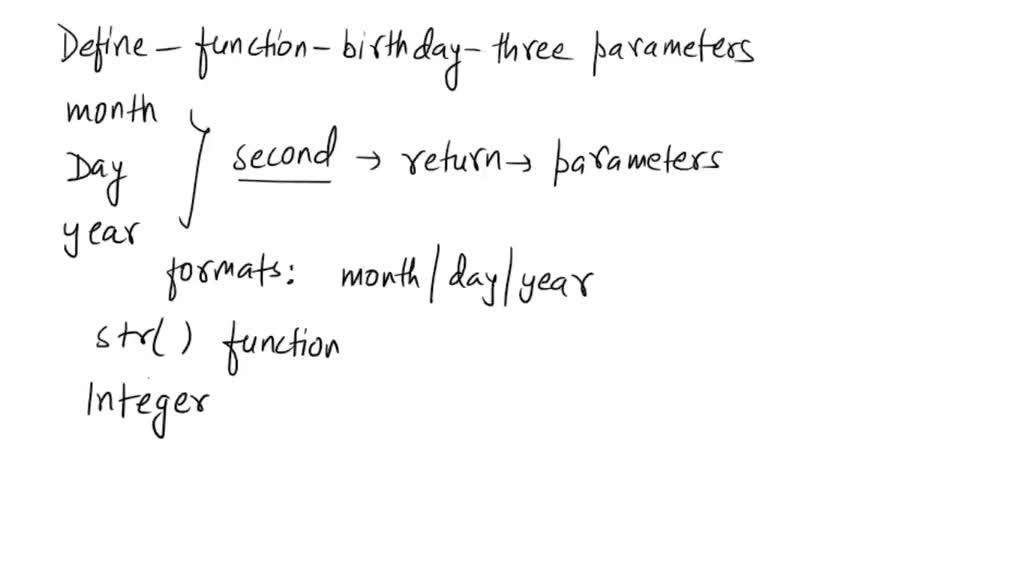 Define - function - birthday - three parameters
month
Day
year
second → return → parameters
formats: month/day/year
str() function
Integer